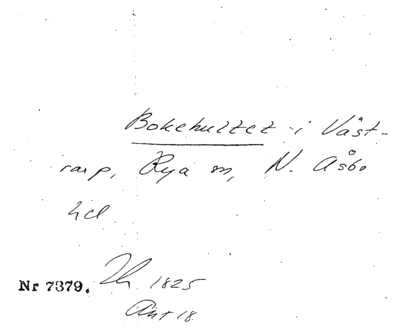 Bokehultet i Väst-
rarp, Rya sn, N. Åsbo
hd
Nr 7379. 1825
Akt 18